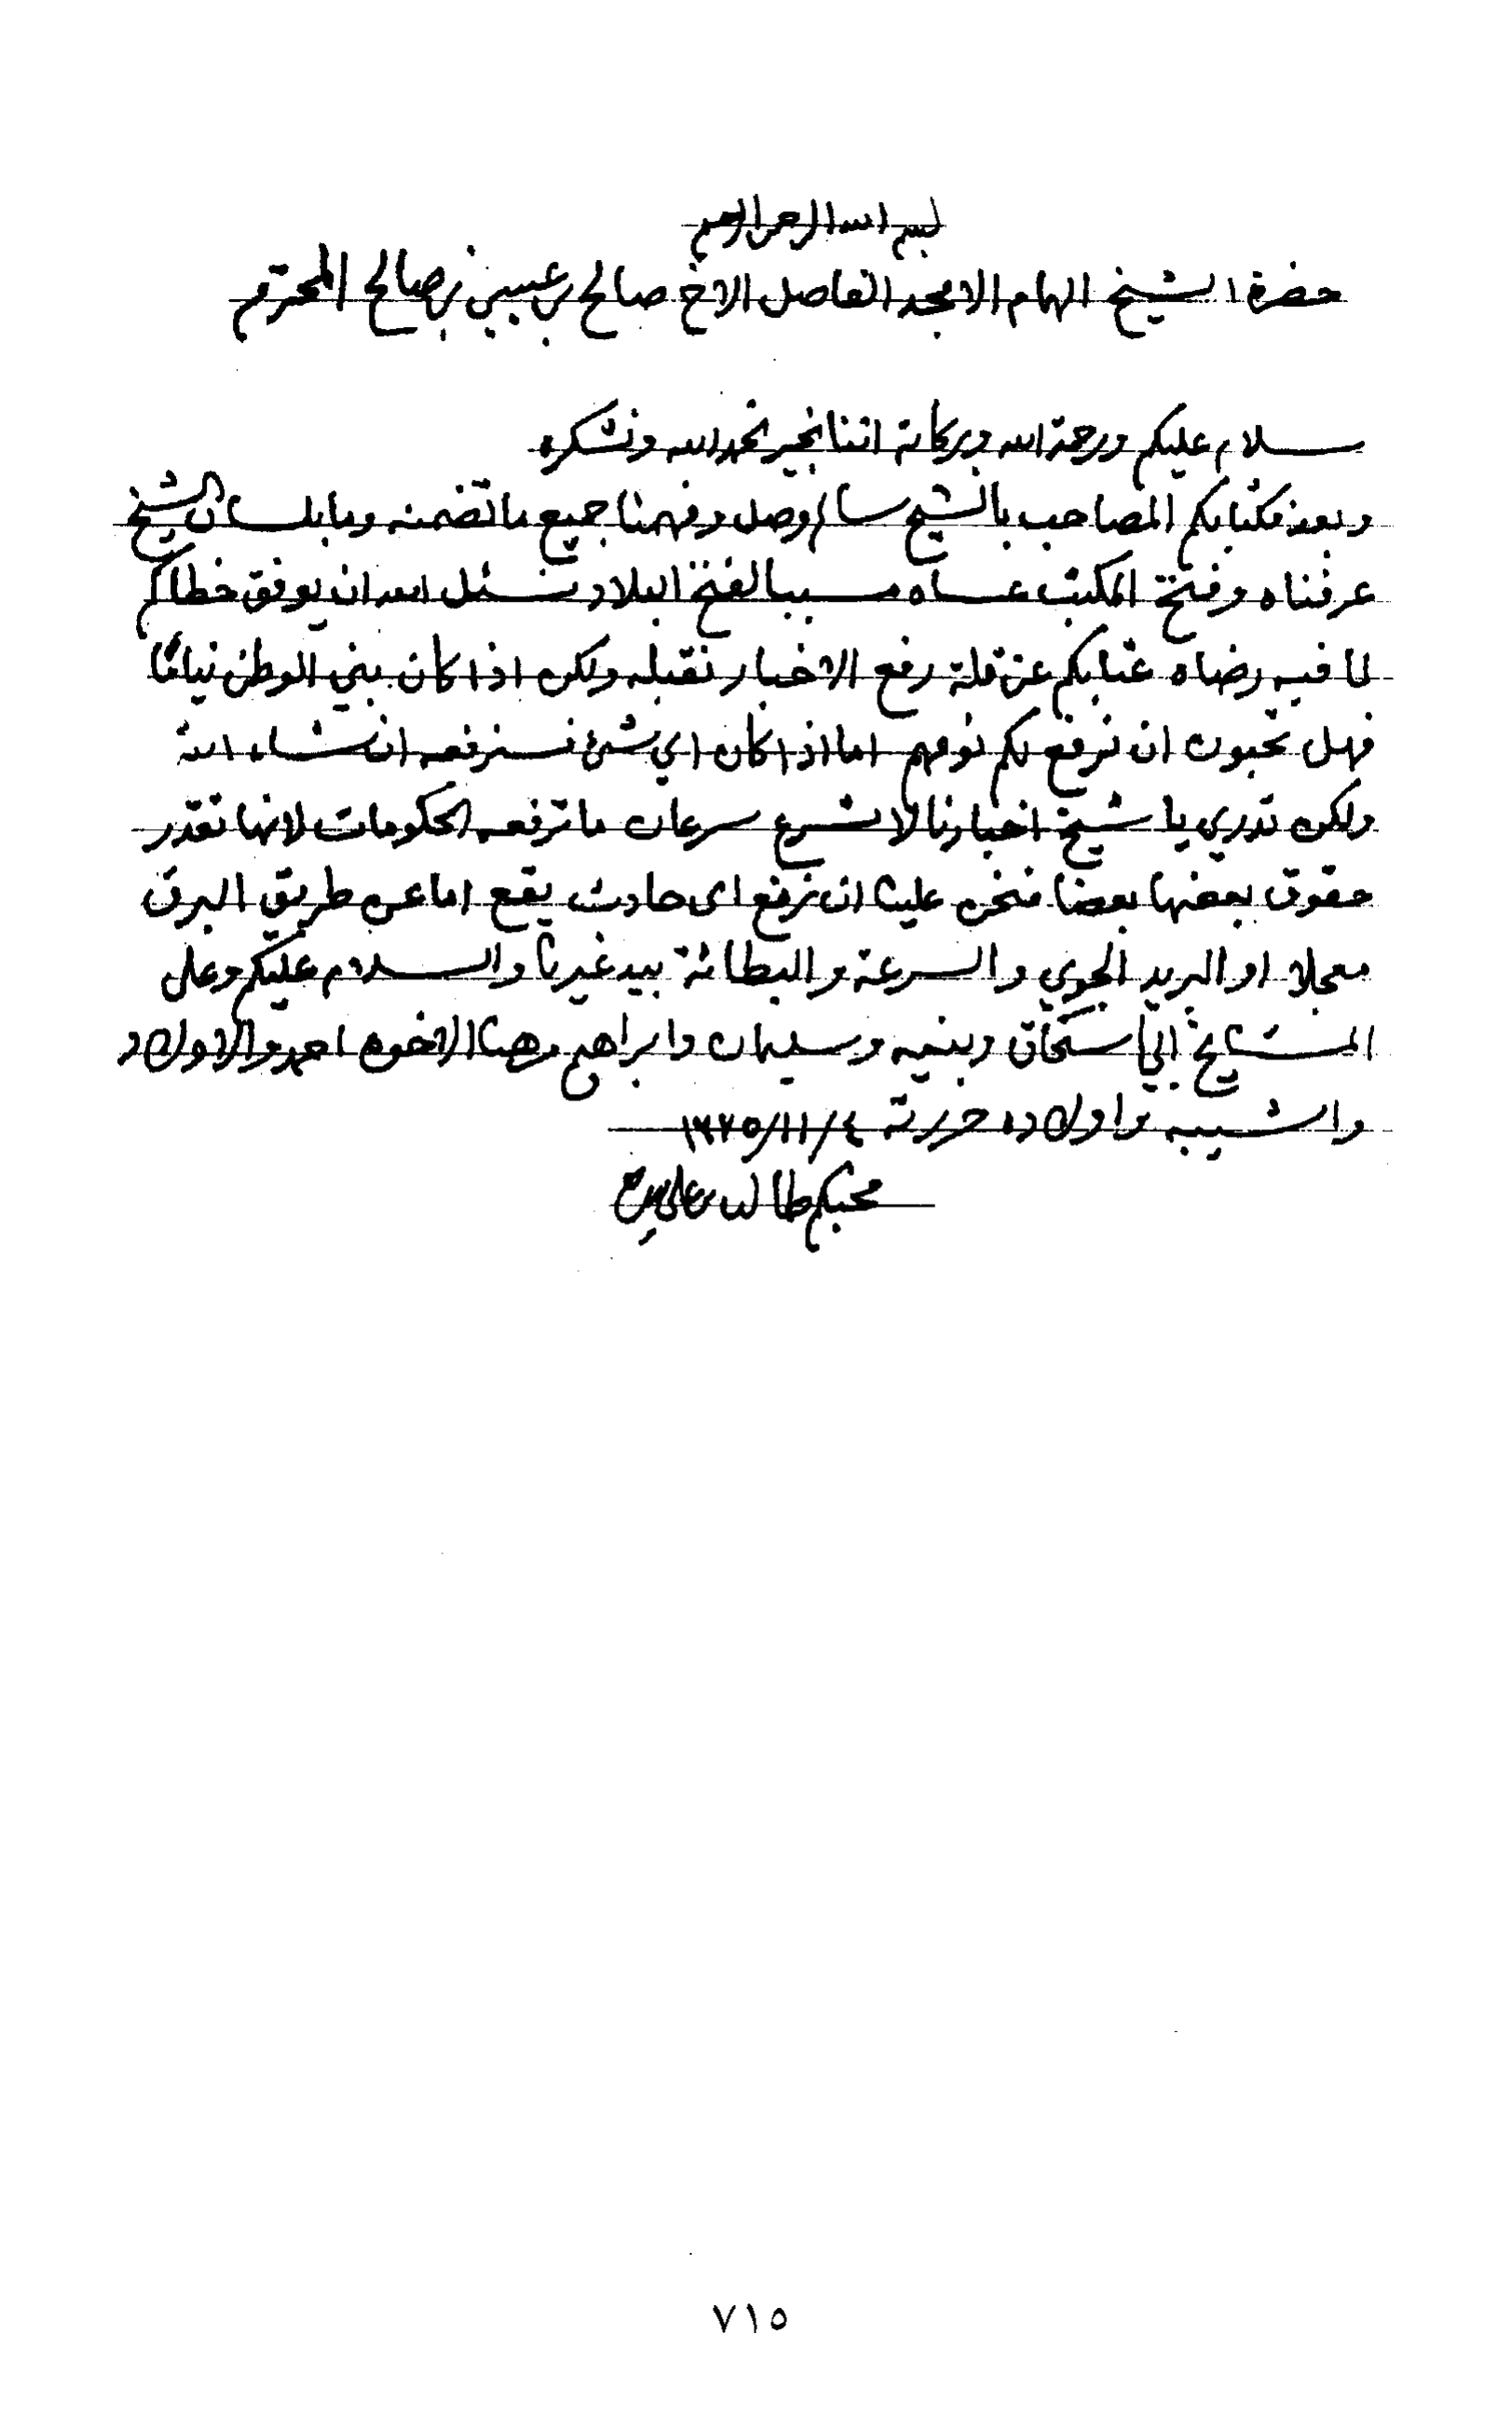 بسم الله الرحمن الرحيم
حضرة الشيخ الهمام الامجد الفاضل الاخ صالح بن عيسى بن صالح المحترم
سلام عليكم ورحمة الله وبركاته اننا بخير نحمد الله ونشكره
وبعد فكتابكم المصاحب بالشيخ سالم وصل وفهمنا جميع ما تضمنه وما بلسان الشيخ
عرفناه وفتح المكتب عساه سببا لفتح البلاد نسئل الله ان يوفق خطاكم
لما فيه رضاه عتابكم عن قلة رفع الاخبار نقبله ولكن اذا كان بني الوطن نياما
فهل تحبون ان نرفع لكم نومهم اما اذا كان اي شئ فسنرفعه ان شاء الله
ولكن تدري يا شيخ اخبارنا لا تسرع سرعان ما ترفعه الحكومات لانها تقدر
حقوق بعضها بعضا فنحن علينا ان نرفع اى حادث يقع اما عن طريق البرق
معجلا او البريد الجوي والسرعة والبطائة بيد غيرنا والسلام عليكم وعلى
المشايخ ابي اسحاق وبنيه وسليمان وابراهيم وهنا الاخوه احمد والاولاد
والشيبه واولاده حررته ٤/١١/١٣٧٥
محبكم طالب بن علي
٧١٥